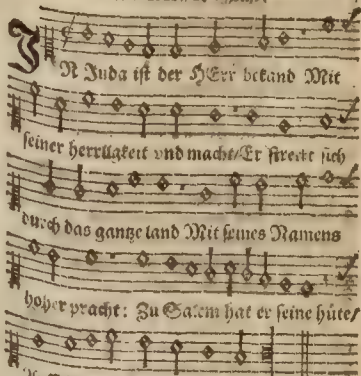 IN Juda ist der HErr bekand Mit
seiner herrligkeit vnd macht/Er streckt sich
durch das gantze land Mit seines Namens
hoher pracht: Zu Salem hat er seine hüte/